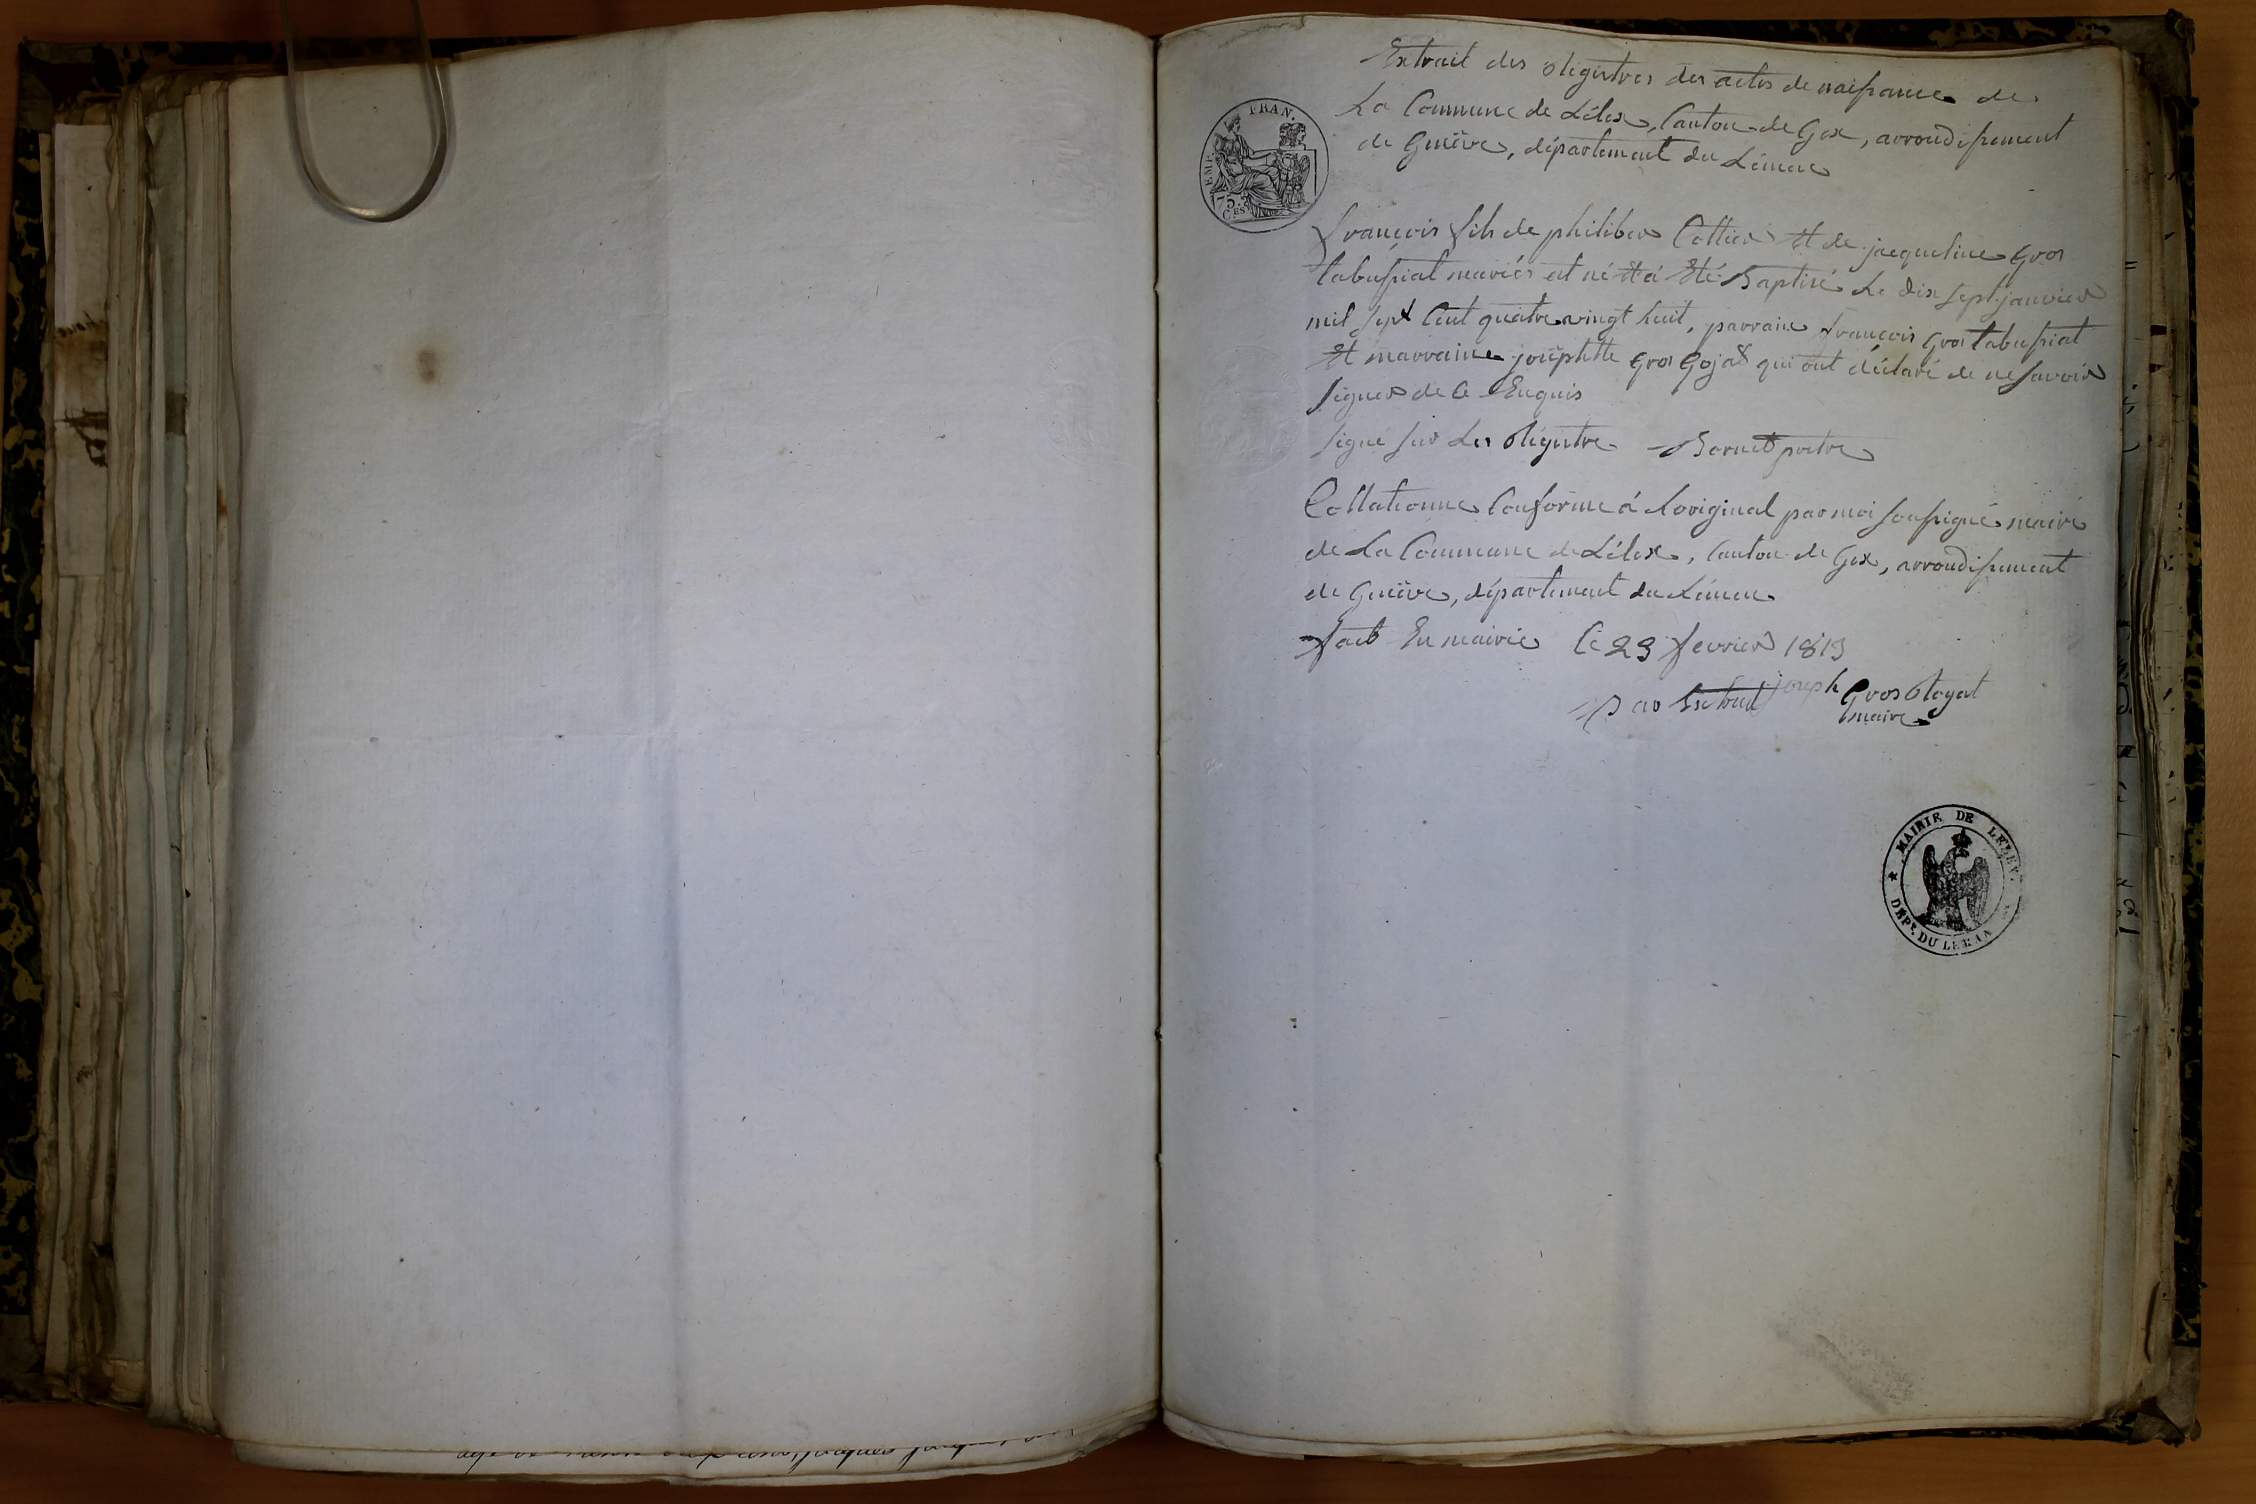 Extrait des Régistres des actes de naissance de
La Commune de Lélex, Canton de Gex, arrondissement
de Genève, département du Léman
EMP. FRAN.
75
CES
françois fils de philiber Cottier Et de jacqueline Gros
tabussiat mariés est né Et a Eté Baptisé Le dix sept janvier
mil sept Cent quatre vingt huit, parrain françois Gros tabussiat
Et marraine josephtte Gros Gojat qui ont déclaré de ne savoir
signer de Ce Enquis
signé sur Les Régistre Bornet pretre
Collationné Conforme á Loriginal par moi soussigné maire
de La Commune de Lélex, Canton de Gex, arrondissement
de Genève, département du Léman
fait En mairie Ce 23 fevrier 1813
Par Extrait joseph Gros Royat
maire
MAIRIE DE LELEX.
DEPT. DU LEMAN